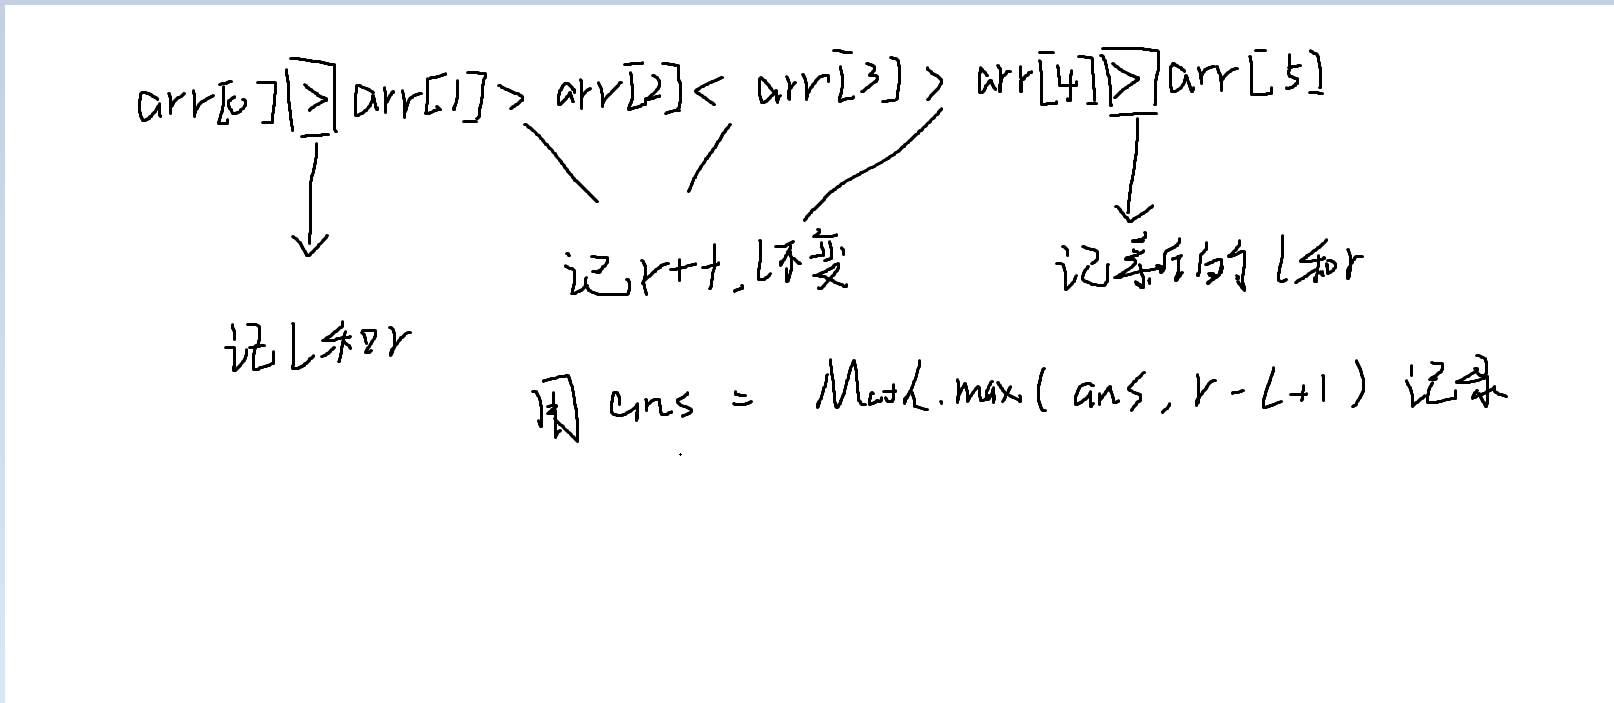 arr[0] > arr[1] > arr[2] < arr[3] > arr[4] > arr[5]
记r++,l不变
记新的l和r
记l和r
用 ans = Math.max(ans, r-l+1) 记录